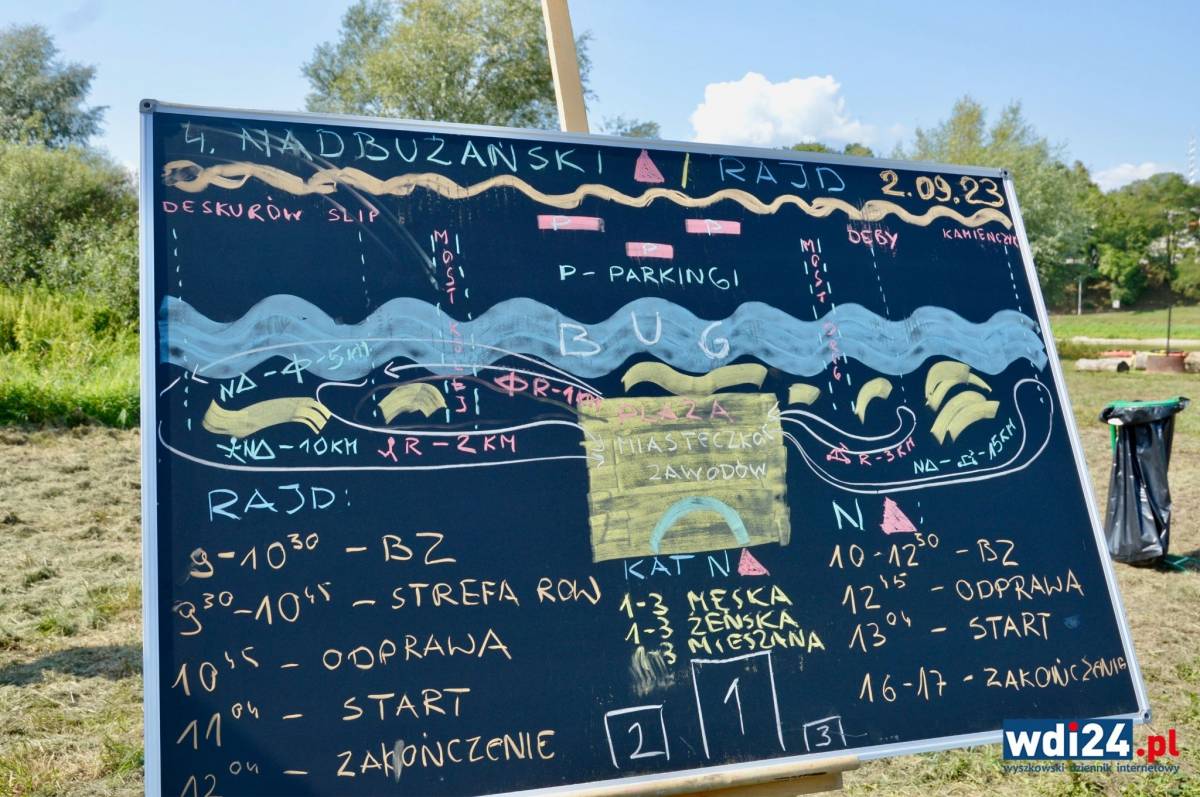 4. NADBUŻAŃSKI / RAJD 2.09.23
DESKURÓW SLIP
MOST KOLEJ
P P
P
P - PARKINGI
MOST DROG
DĘBY
KAMIEŃCZYK
BUG
N∆ - Φ - 5 KM
ΦR - 1 KM
N∆ - 10KM
R - 2 KM
PLAŻA
MIASTECZKO
ZAWODÓW
R - 3KM
N∆ - 15KM
RAJD:
9 - 10³⁰ - BZ
9³⁰ - 10⁴⁵ - STREFA ROW
10⁴⁵ - ODPRAWA
11⁰⁴ - START
12⁰⁴ - ZAKOŃCZENIE
KAT N
1-3 MĘSKA
1-3 ŻEŃSKA
1-3 MIESZANA
2 1 3
N
10 - 12³⁰ - BZ
12⁴⁵ - ODPRAWA
13⁰⁴ - START
16-17 - ZAKOŃCZENIE
wdi24.pl
wyszkowski dziennik internetowy